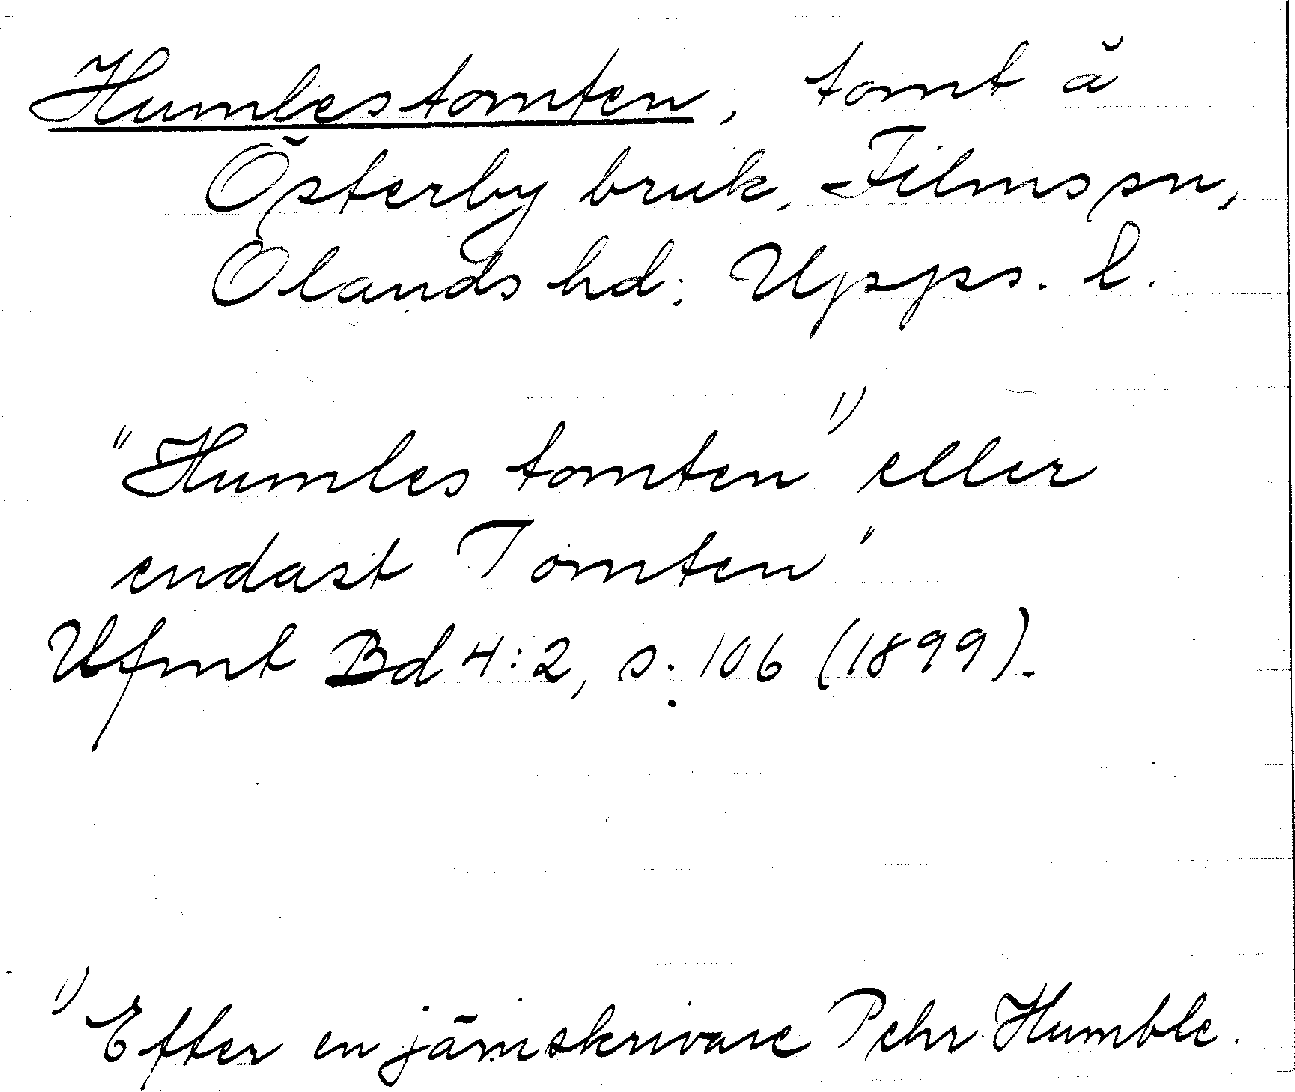 Humlestomten, tomt å
Österby bruk, Films sn,
Olands hd: Upps. l.
"Humles tomten¹⁾ eller
endast Tomten"
Ufmt Bd 4:2, s. 106 (1899).
¹⁾ Efter en järnskrivare Pehr Humble.